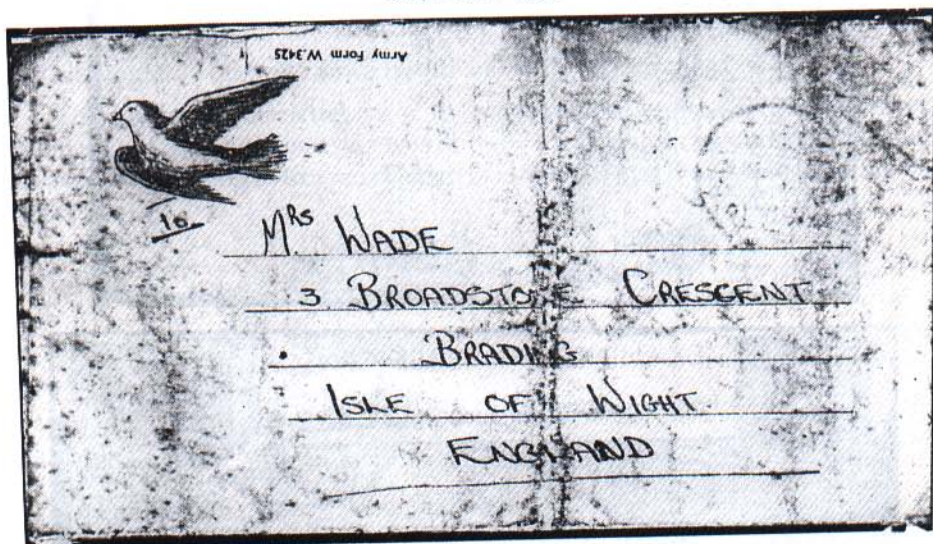 Army Form W.3425
16
MRS WADE
3 BROADSTONE CRESCENT
BRADING
ISLE OF WIGHT
ENGLAND